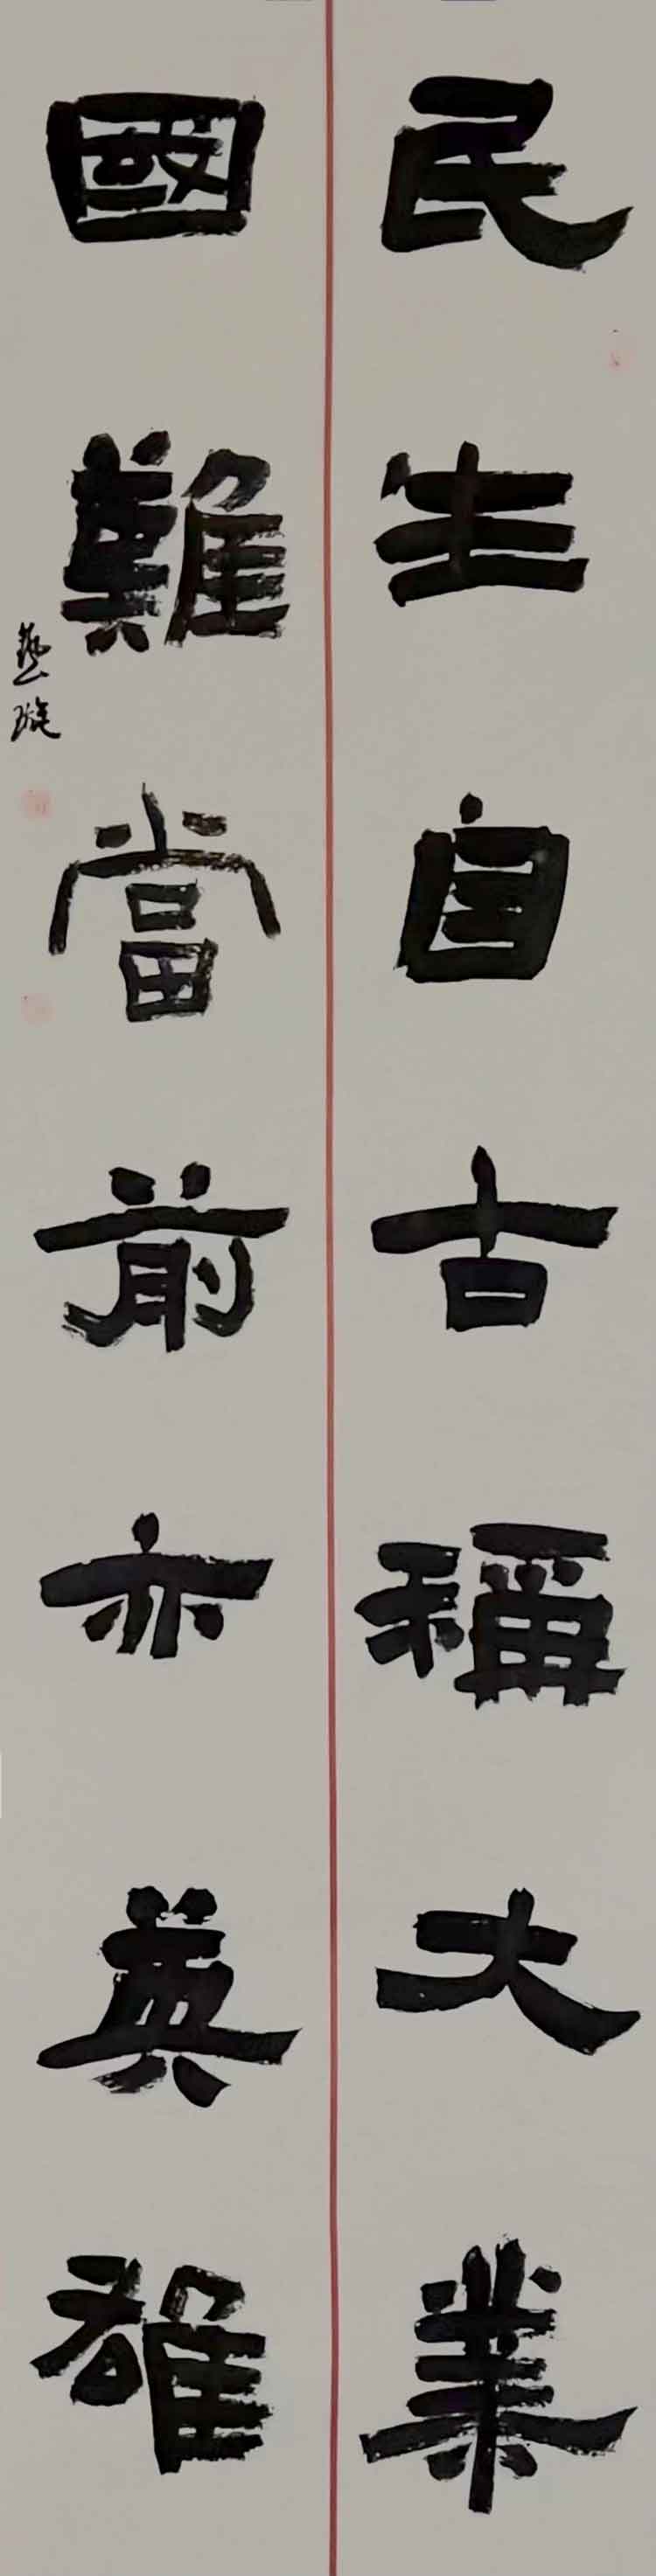 民生自古稱大業
國難當前亦英雄
藝璇